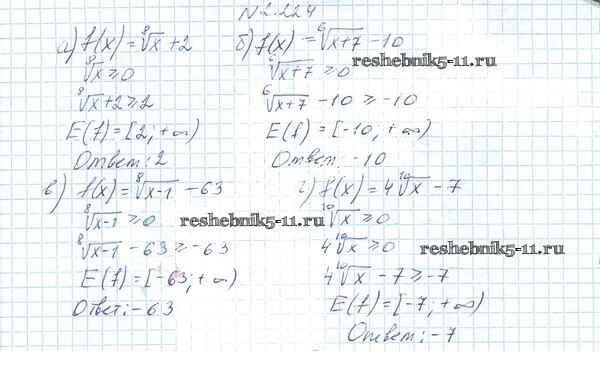 № 2.224
а) f(x) = ⁸√x + 2
⁸√x ≥ 0
⁸√x + 2 ≥ 2
E(f) = [2; +∞)
Ответ: 2
б) f(x) = ⁶√x+7 - 10
⁶√x+7 ≥ 0
reshebnik5-11.ru
⁶√x+7 - 10 ≥ -10
E(f) = [-10; +∞)
Ответ: -10
в) f(x) = ⁸√x-1 - 63
⁸√x-1 ≥ 0
reshebnik5-11.ru
⁸√x-1 - 63 ≥ -63
E(f) = [-63; +∞)
Ответ: -63
г) f(x) = 4 ¹⁰√x - 7
¹⁰√x ≥ 0
4 ¹⁰√x ≥ 0
reshebnik5-11.ru
4 ¹⁰√x - 7 ≥ -7
E(f) = [-7; +∞)
Ответ: -7